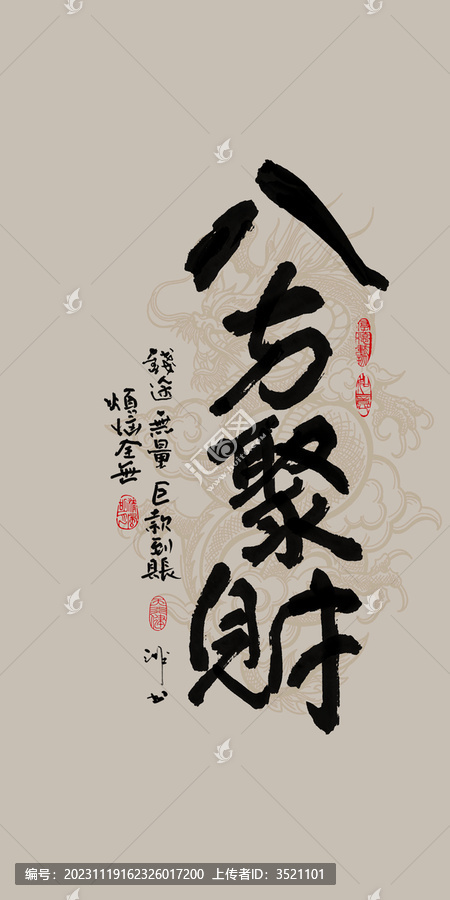 八方聚财
錢途無量 巨款到賬
煩惱全無
汇图网
编号：20231119162326017200 上传者ID：3521101